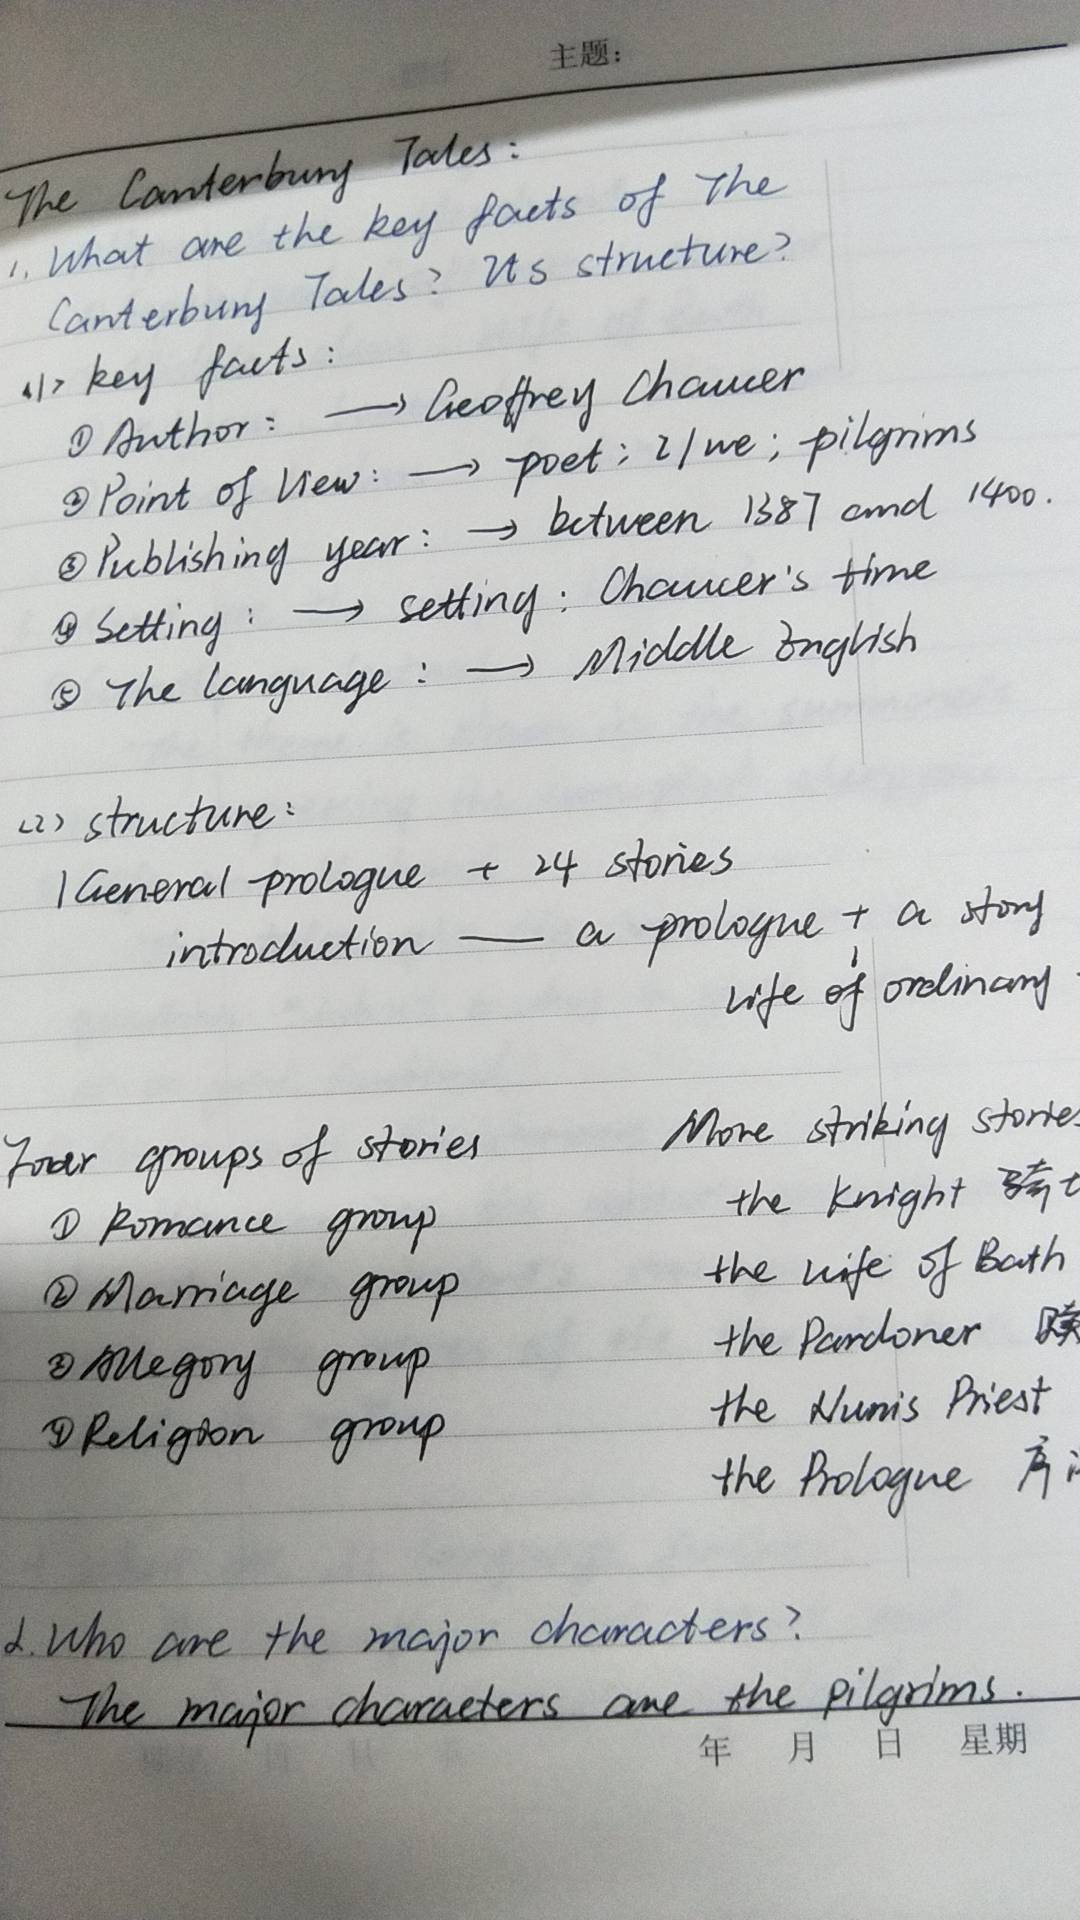 主题:
The Canterbury Tales:
1. What are the key facts of The
Canterbury Tales? Its structure?
<1> key facts:
① Author: → Geoffrey Chaucer
② Point of View: → poet; I/we; pilgrims
③ Publishing year: → between 1387 and 1400.
④ Setting: → setting: Chaucer's time
⑤ The language: → Middle English
<2> structure:
General prologue + 24 stories
introduction — a prologue + a story
life of ordinary
Four groups of stories
① Romance group
② Marriage group
③ Allegory group
④ Religion group
More striking stories
the Knight 骑士
the Wife of Bath
the Pardoner
the Nun's Priest
the Prologue 序
2. Who are the major characters?
The major characters are the pilgrims.
年 月 日 星期